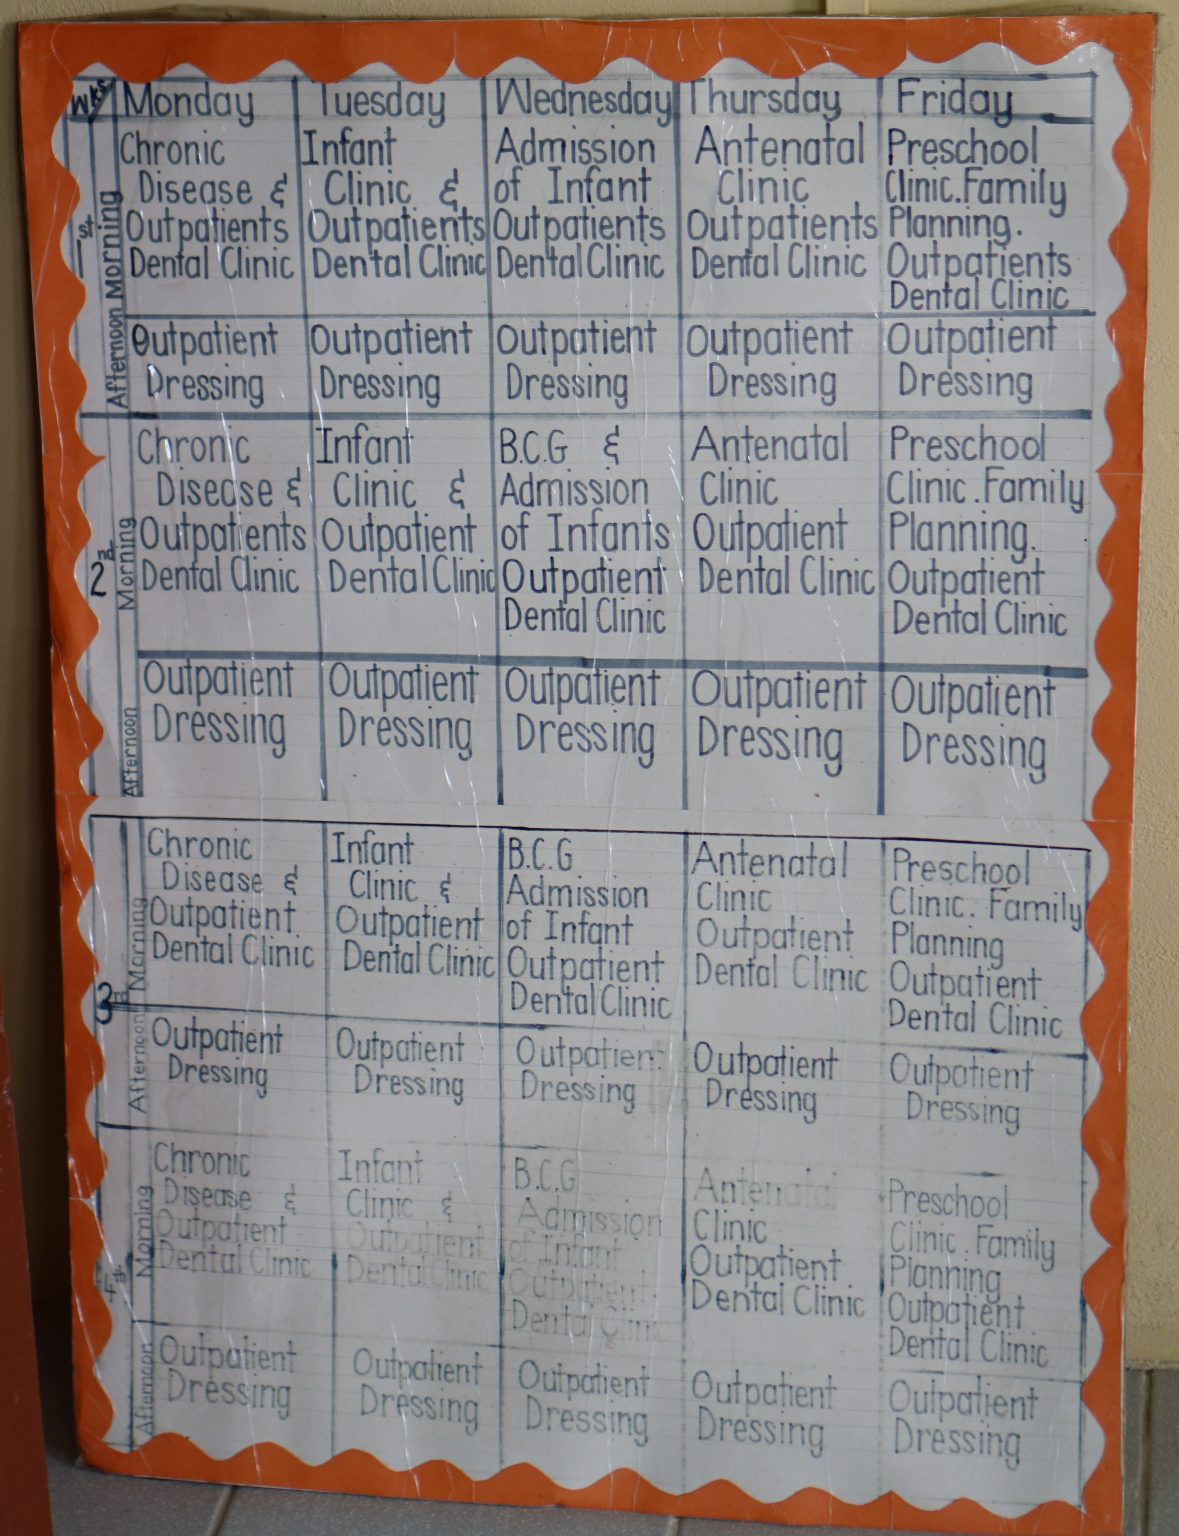 Wks Monday Tuesday Wednesday Thursday Friday
1st
Morning
Chronic
Disease &
Outpatients
Dental Clinic
Infant
Clinic &
Outpatients
Dental Clinic
Admission
of Infant
Outpatients
Dental Clinic
Antenatal
Clinic
Outpatients
Dental Clinic
Preschool
Clinic. Family
Planning.
Outpatients
Dental Clinic
Afternoon
Outpatient
Dressing
Outpatient
Dressing
Outpatient
Dressing
Outpatient
Dressing
Outpatient
Dressing
2nd
Morning
Chronic
Disease &
Outpatients
Dental Clinic
Infant
Clinic &
Outpatient
Dental Clinic
B.C.G &
Admission
of Infants
Outpatient
Dental Clinic
Antenatal
Clinic
Outpatient
Dental Clinic
Preschool
Clinic. Family
Planning.
Outpatient
Dental Clinic
Afternoon
Outpatient
Dressing
Outpatient
Dressing
Outpatient
Dressing
Outpatient
Dressing
Outpatient
Dressing
3rd
Morning
Chronic
Disease &
Outpatient
Dental Clinic
Infant
Clinic &
Outpatient
Dental Clinic
B.C.G
Admission
of Infant
Outpatient
Dental Clinic
Antenatal
Clinic
Outpatient
Dental Clinic
Preschool
Clinic. Family
Planning
Outpatient
Dental Clinic
Afternoon
Outpatient
Dressing
Outpatient
Dressing
Outpatient
Dressing
Outpatient
Dressing
Outpatient
Dressing
4th
Morning
Chronic
Disease &
Outpatient
Dental Clinic
Infant
Clinic &
Outpatient
Dental Clinic
B.C.G
Admission
of Infant
Outpatient
Dental Clinic
Antenatal
Clinic
Outpatient
Dental Clinic
Preschool
Clinic. Family
Planning
Outpatient
Dental Clinic
Afternoon
Outpatient
Dressing
Outpatient
Dressing
Outpatient
Dressing
Outpatient
Dressing
Outpatient
Dressing